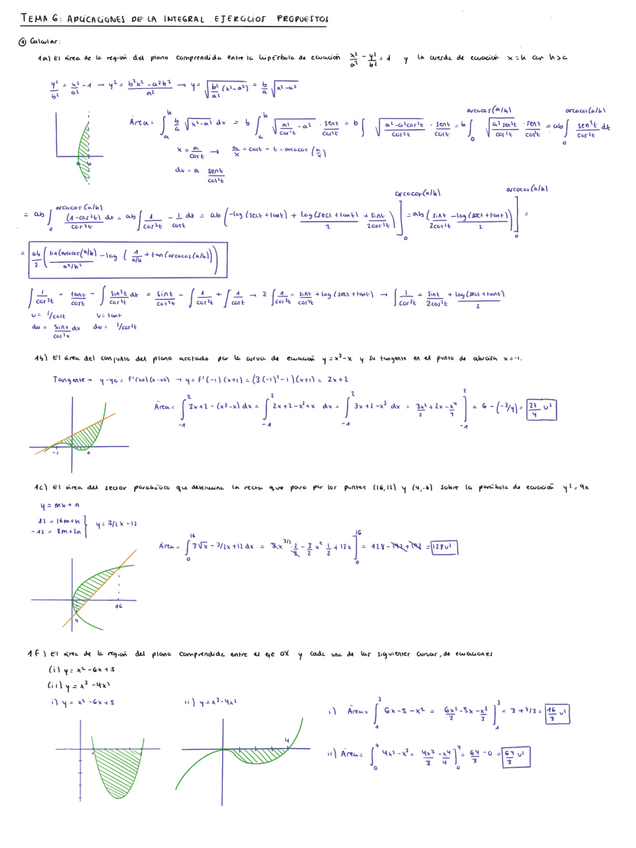 TEMA 6: APLICACIONES DE LA INTEGRAL. EJERCICIOS PROPUESTOS
① Calcular:
1a) El área de la región del plano comprendida entre la hipérbola de ecuación x²/a² - y²/b² = 1 y la cuerda de ecuación x=h con h>a
y²/b² = x²/a² - 1 → y² = (b²x² - a²b²)/a² → y = √(b²/a² (x²-a²)) = b/a √(x²-a²)
Área = ∫ b/a √(x²-a²) dx = b ∫ √(a²/cos²t - a²) · sent/cos²t = b ∫ √((a²-a²cos²t)/cos²t) · sent/cos²t = b ∫ √(a²sen²t/cos²t) · sent/cos²t = ab ∫ sen²t/cos³t dt
x = a/cost → a/x = cost → t = arccos(a/x)
dx = a sent/cos²t
= ab ∫ (1-cos²t)/cos³t dt = ab ∫ 1/cos³t - 1/cost dt = ab (-log(sect+tant) + log(sect+tant)/2 + sint/2cos²t)] = ab (sint/2cos²t - log(sect+tant)/2)] =
= ab/2 (sin(arccos(a/h))/a²/h² - log(1/a/h + tan(arccos(a/h))))
∫ 1/cos³t = tant/cost - ∫ sin²t/cos³t dt = sint/cos²t - ∫ 1/cos³t + ∫ 1/cost → 2 ∫ 1/cos³t = sint/cos²t + log(sect+tant) → ∫ 1/cos³t = sint/2cos²t + log(sect+tant)/2
u = 1/cost v = tant
du = sint/cos²t dx dv = 1/cos²t
1b) El área del conjunto del plano acotado por la curva de ecuación y = x³-x y su tangente en el punto de abscisa x=-1.
Tangente → y-y0 = f'(x0)(x-x0) → y = f'(-1)(x+1) = (3(-1)²-1)(x+1) = 2x+2
Área = ∫ 2x+2-(x³-x) dx = ∫ 2x+2-x³+x dx = ∫ 3x+2-x³ dx = 3x²/2 + 2x - x⁴/4 ] = 6 - (-3/4) = 27/4 u²
-1 1
1c) El área del sector parabólico que determina la recta que pasa por los puntos (16,12) y (4,-6) sobre la parábola de ecuación y² = 9x
y = mx+n
12 = 16m+n
-12 = 8m+2n } y = 3/2x-12
Área = ∫ 3√x - 3/2x + 12 dx = 3x^3/2 · 2/3 - 3/2 x² 1/2 + 12x ] = 128 - 192 + 192 = 128u²
4 16
1f) El área de la región del plano comprendida entre el eje OX y cada una de las siguientes curvas, de ecuaciones
(i) y = x²-6x+5
(ii) y = x³-4x²
i) y = x²-6x+5 ii) y = x³-4x²
i) Área = ∫ 6x-5-x² = 6x²/2 - 5x - x³/3 ] = 3 + 7/3 = 16/3 u²
ii) Área = ∫ 4x²-x³ = 4x³/3 - x⁴/4 ] = 64/3 - 0 = 64/3 u²
4